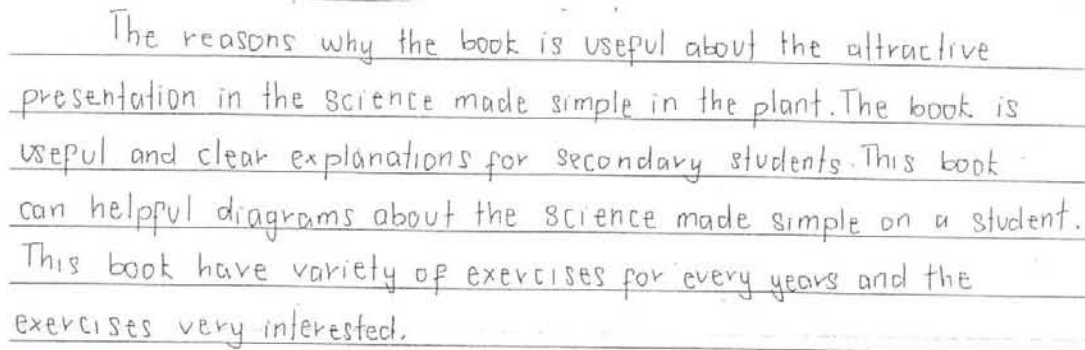 The reasons why the book is useful about the attractive
presentation in the science made simple in the plant. The book is
useful and clear explanations for secondary students. This book
can helpful diagrams about the science made simple on a student.
This book have variety of exercises for every years and the
exercises very interested.